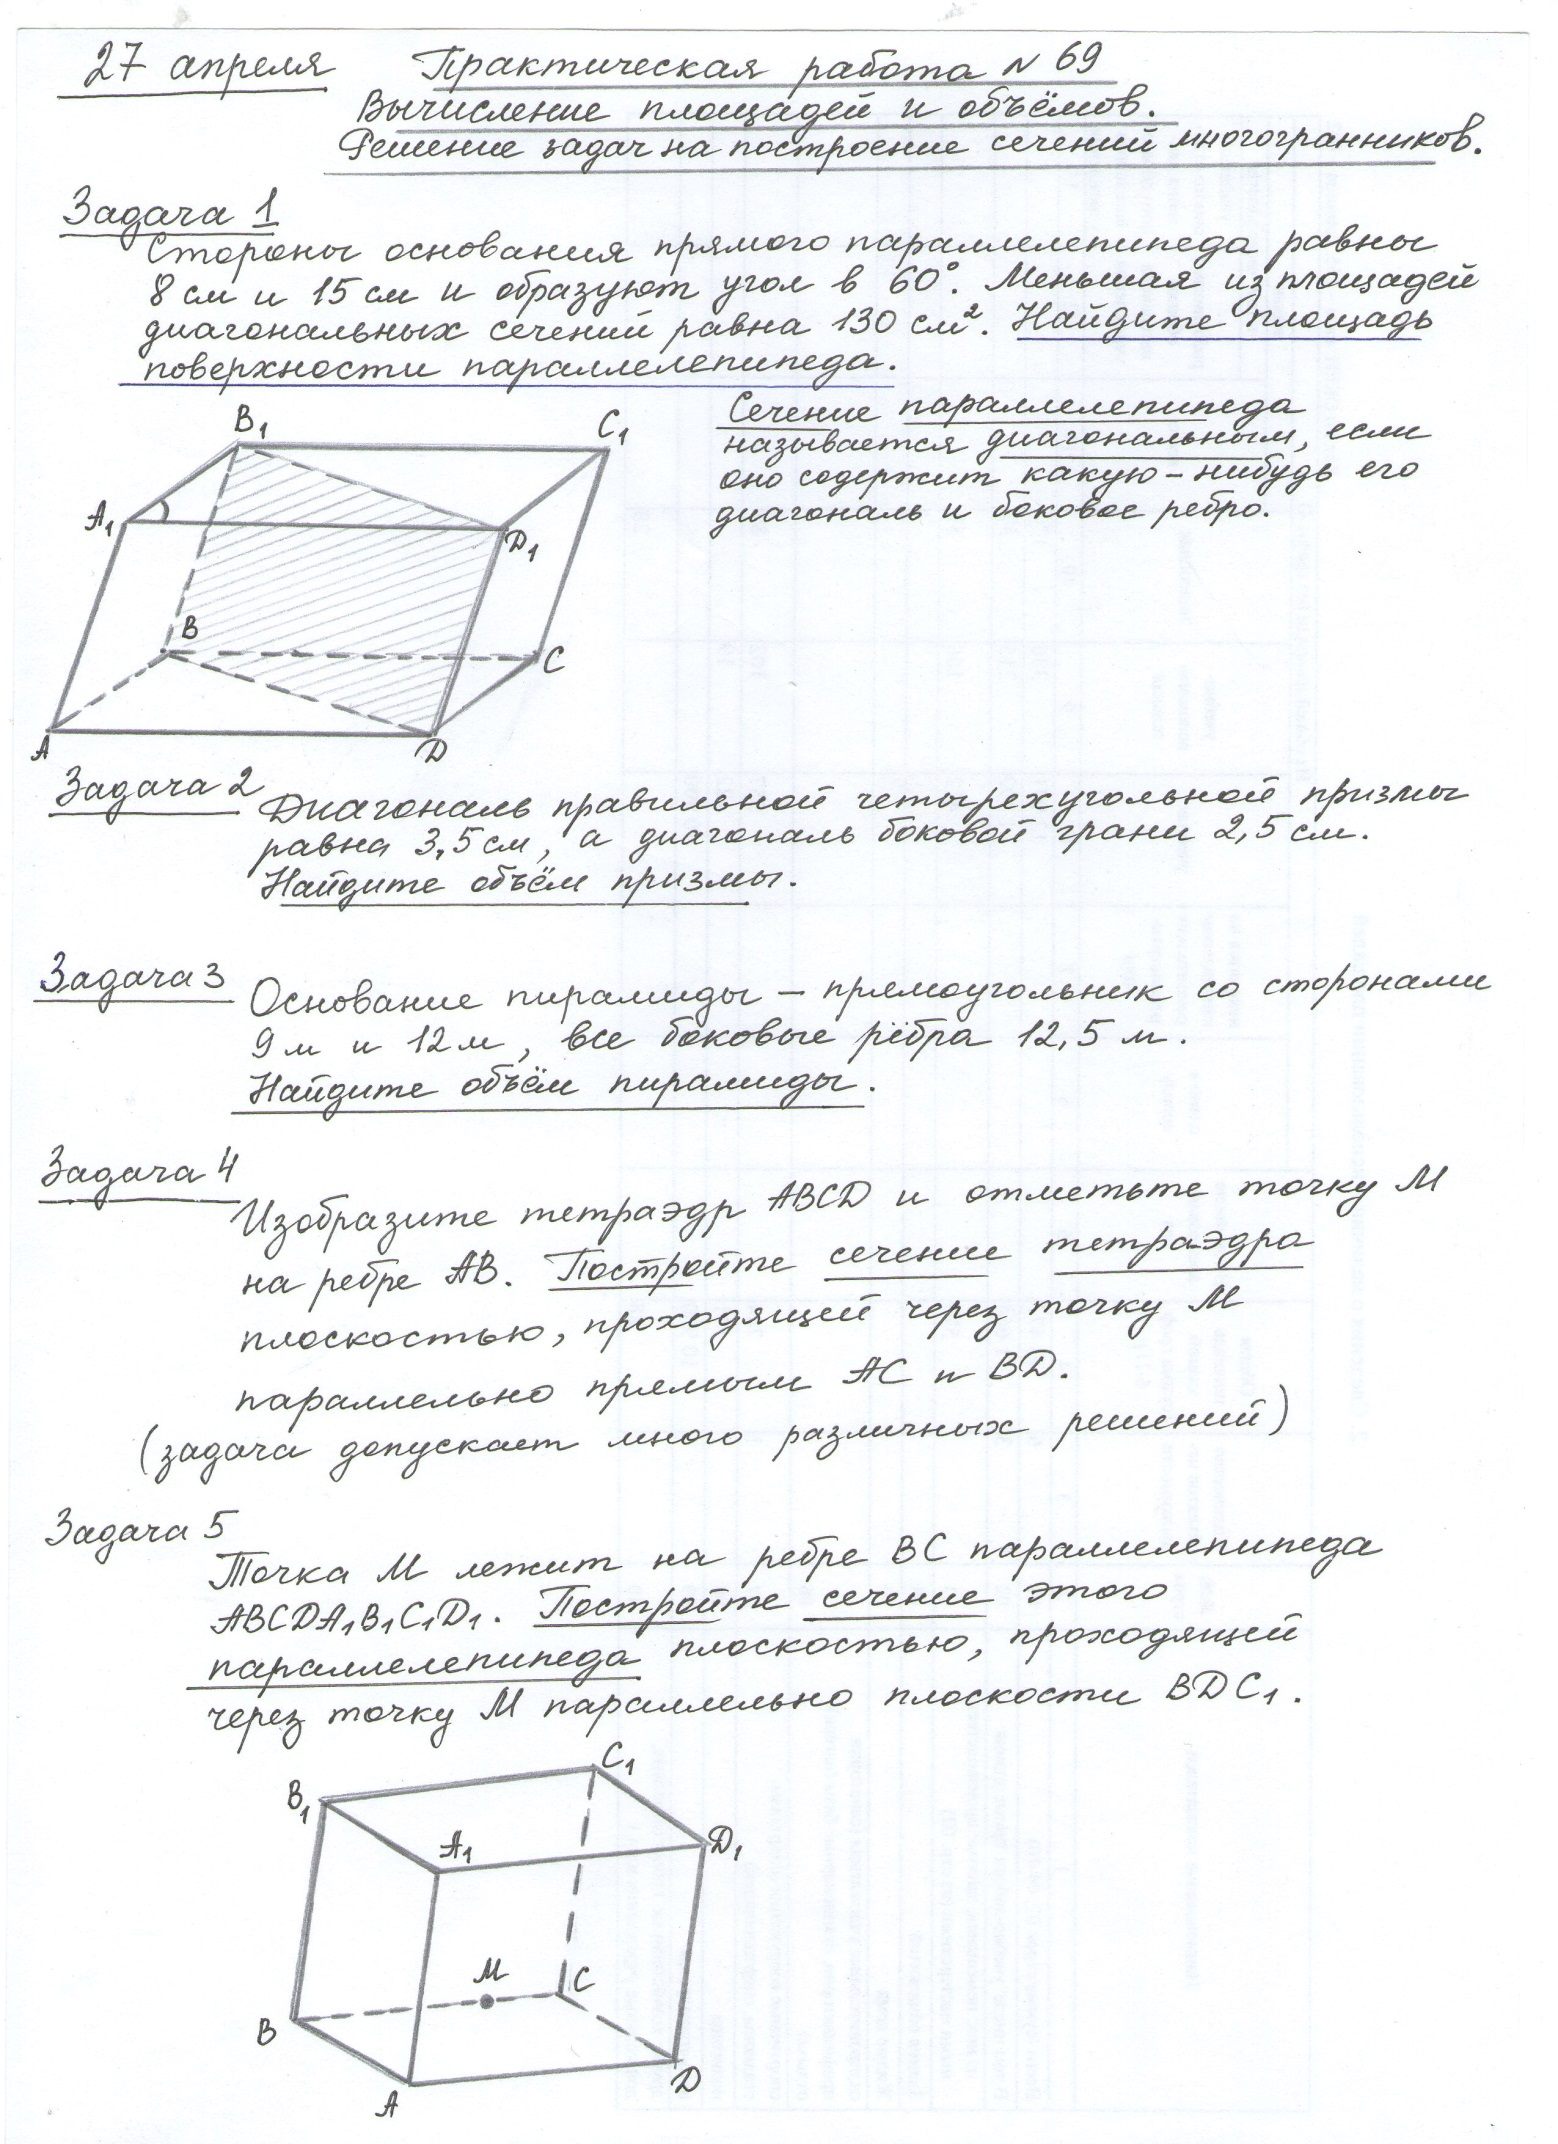 27 апреля Практическая работа N 69
Вычисление площадей и объёмов.
Решение задач на построение сечений многогранников.
Задача 1
Стороны основания прямого параллелепипеда равны
8 см и 15 см и образуют угол в 60°. Меньшая из площадей
диагональных сечений равна 130 см². Найдите площадь
поверхности параллелепипеда.
Сечение параллелепипеда
называется диагональным, если
оно содержит какую-нибудь его
диагональ и боковое ребро.
B₁
C₁
A₁
D₁
B
C
A
D
Задача 2
Диагональ правильной четырехугольной призмы
равна 3,5 см, а диагональ боковой грани 2,5 см.
Найдите объём призмы.
Задача 3
Основание пирамиды – прямоугольник со сторонами
9 м и 12 м, все боковые рёбра 12,5 м.
Найдите объём пирамиды.
Задача 4
Изобразите тетраэдр ABCD и отметьте точку M
на ребре AB. Постройте сечение тетраэдра
плоскостью, проходящей через точку M
параллельно прямым AC и BD.
(задача допускает много различных решений)
Задача 5
Точка M лежит на ребре BC параллелепипеда
ABCDA₁B₁C₁D₁. Постройте сечение этого
параллелепипеда плоскостью, проходящей
через точку M параллельно плоскости BDC₁.
C₁
B₁
A₁
D₁
M
C
B
D
A